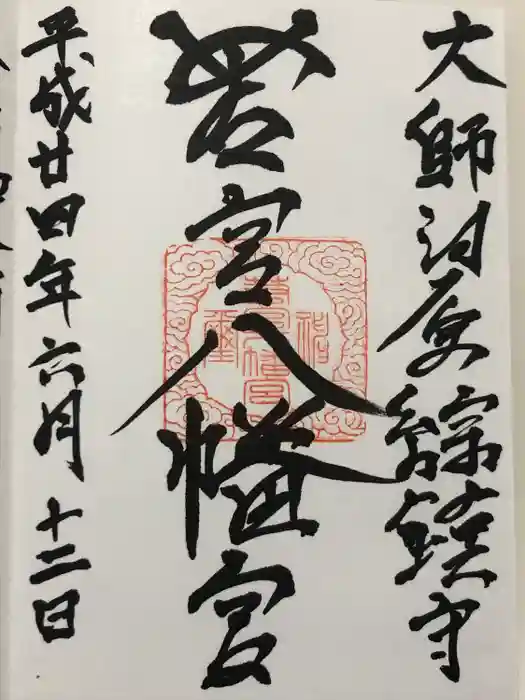 大師河原綜鎮守
若宮八幡宮
平成廿四年六月十二日